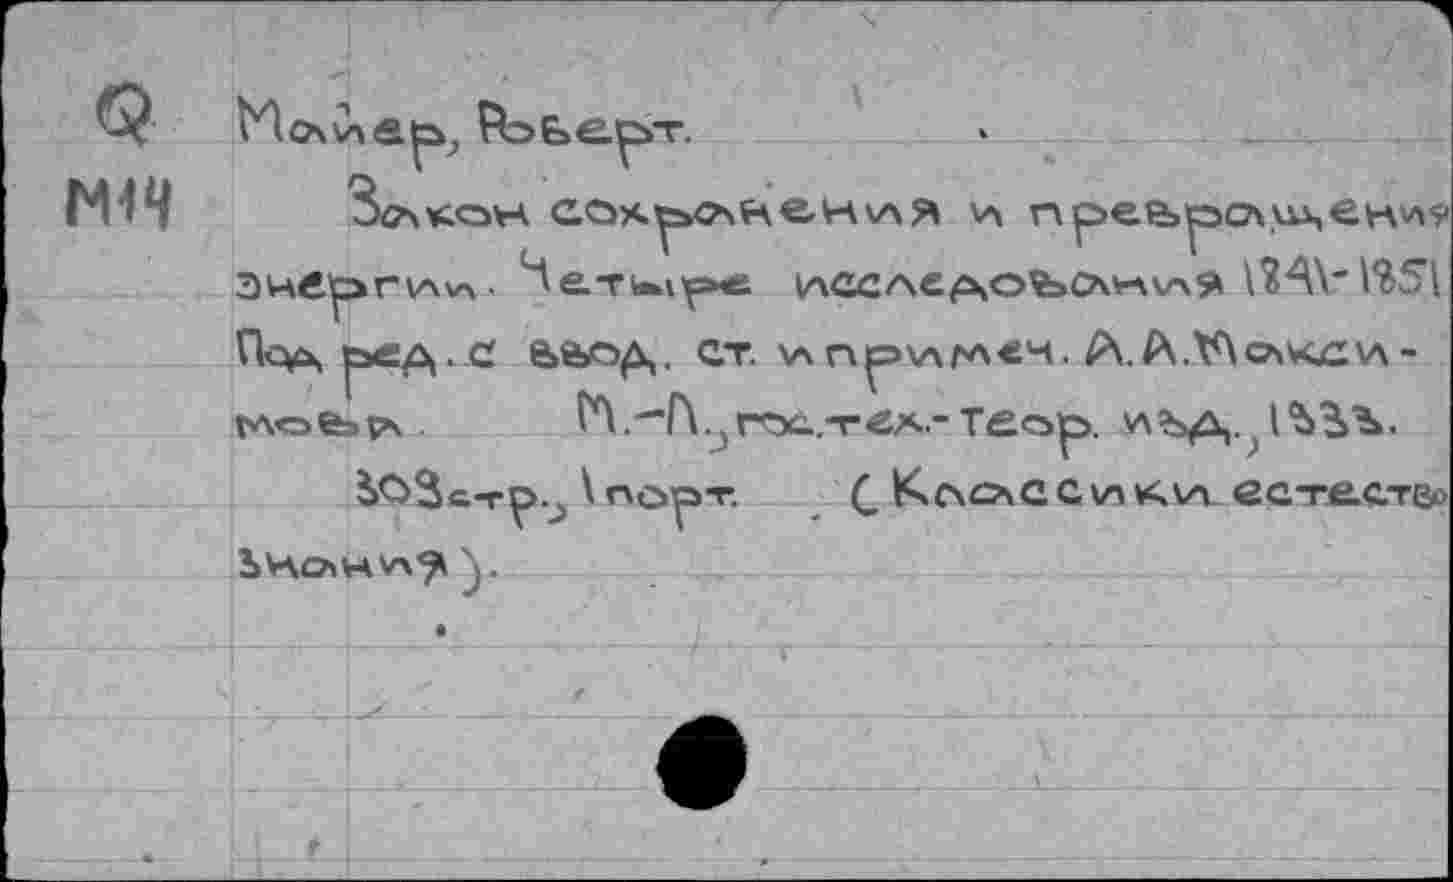 Q Майер, Роберт.
М14 Закон сохранения и превращения
энергии. Четыре исследования 1841-1851
Под ред. с ввод. ст. и примеч. А.А.Макси-
мова. М.-Л., гос.тех.-теор. изд., 1933.
303стр., 1порт. (Классики естество
знания).